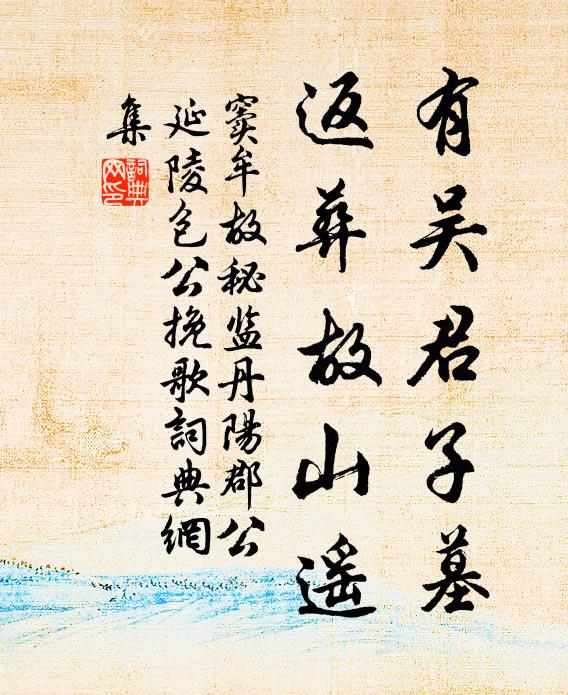 有吴君子墓
返葬故山遥
窦牟故秘监丹陽郡公
延陵包公挽歌詞典網
集
詞典網印